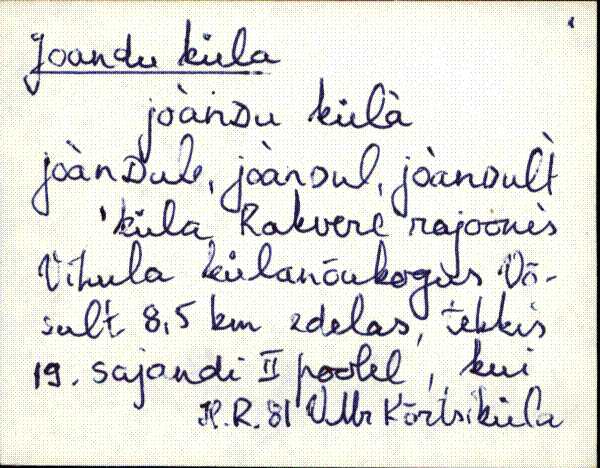 Joandu küla
jòanDu külà
jòanDule, jòanDul, jòanDult
'küla Rakvere rajoonis
Vihula külanõukogus Võ-
sult 8,5 km edelas, tekkis
19. sajandi II poolel, kui
H.R. 81 VMr Kõrtsiküla